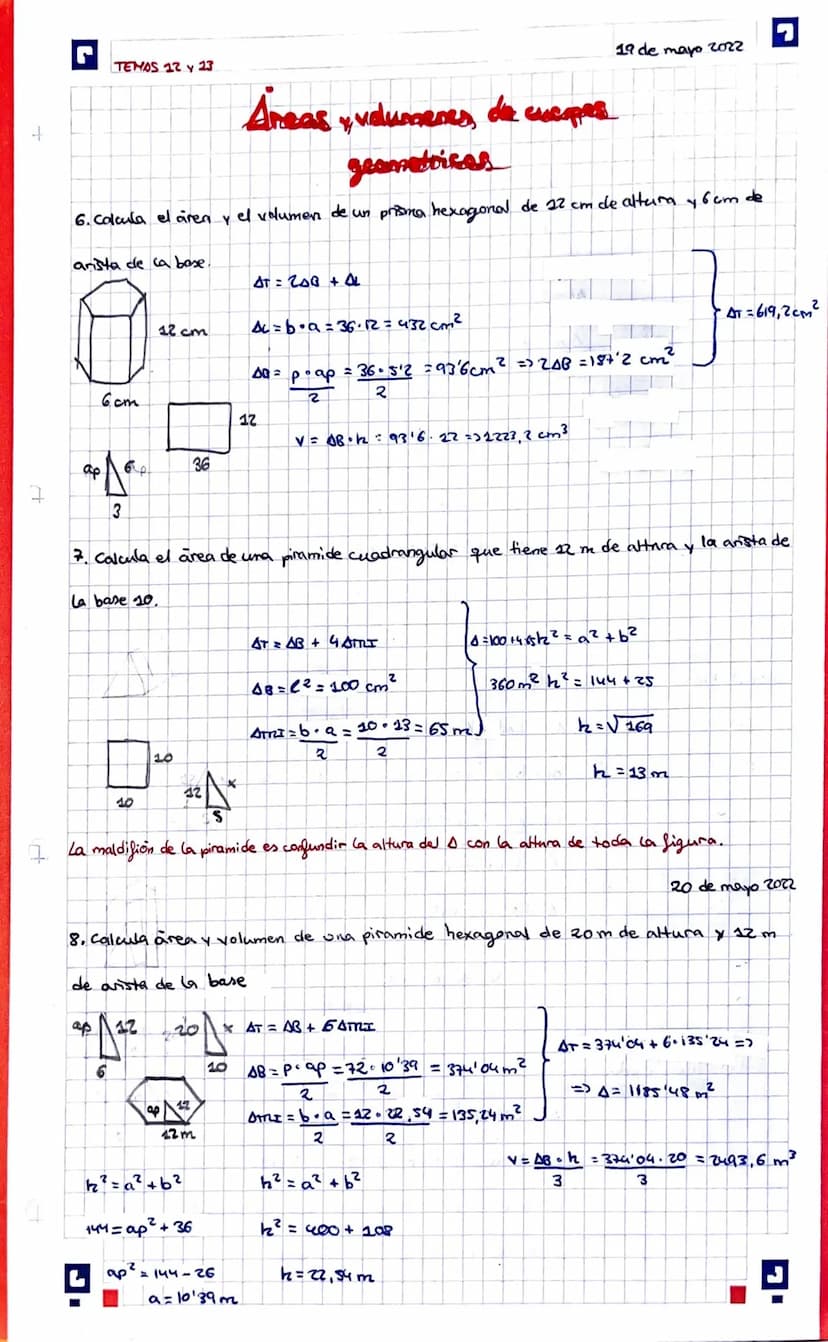 19 de mayo 2022
TEMAS 12 y 13
Áreas y volumenes, de cuerpos
geometricos
6. Calcula el área y el volumen de un prisma hexagonal de 12 cm de altura y 6 cm de
arista de la base.
AT = 2AB + AL
12 cm
AL = b · a = 36 · 12 = 432 cm²
AT = 619,2 cm²
AB = p · ap / 2 = 36 · 5'2 / 2 = 93'6 cm² => 2AB = 187'2 cm²
6 cm
12
36
V = AB · h = 93'6 · 12 => 1223,2 cm³
ap 6
3
7. Calcula el área de una piramide cuadrangular que tiene 12 m de altura y la arista de
la base 10.
AT = AB + 4 AmI
h² = a² + b²
AB = l² = 100 cm²
360 m² h² = 144 + 25
AmI = b · a / 2 = 10 · 13 / 2 = 65 m
h = √169
h = 13 m
10
10
12 x
5
La maldición de la piramide es confundir la altura del Δ con la altura de toda la figura.
20 de mayo 2022
8. Calcula área y volumen de una piramide hexagonal de 20 m de altura y 12 m
de arista de la base
ap 12
6
20 x
10
AT = AB + 6 AmI
AB = p · ap / 2 = 72 · 10'39 / 2 = 374'04 m²
AmI = b · a / 2 = 12 · 22,54 / 2 = 135,24 m²
AT = 374'04 + 6 · 135'24 =>
=> A = 1185'48 m²
ap 12
12 m
V = AB · h / 3 = 374'04 · 20 / 3 = 2493,6 m³
h² = a² + b²
144 = ap² + 36
ap² = 144 - 26
a = 10'39 m
h² = a² + b²
h² = 400 + 108
h = 22,54 m